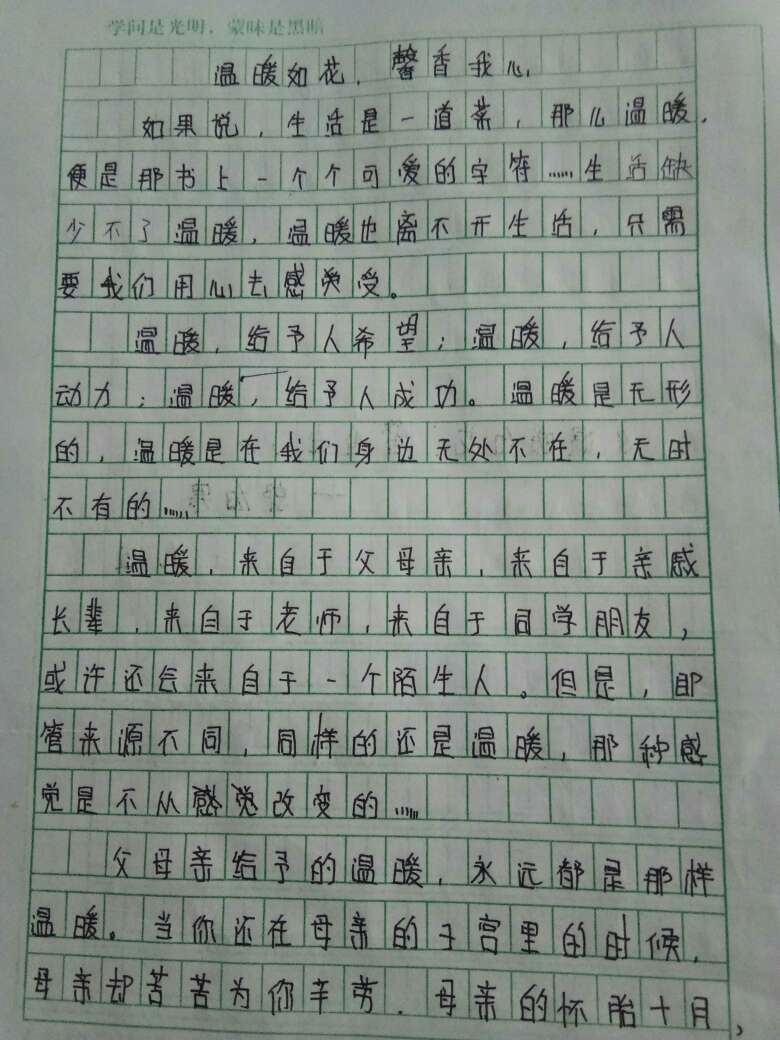 学问是光明，蒙昧是黑暗
温暖如花，馨香我心
如果说，生活是一道菜，那么温暖，
便是那书上一个个可爱的字符……生活缺
少不了温暖，温暖也离不开生活，只需
要我们用心去感觉受。
温暖，给予人希望；温暖，给予人
动力；温暖，给予人成功。温暖是无形
的，温暖是在我们身边无处不在，无时
不有的……
温暖，来自于父母亲，来自于亲戚
长辈，来自于老师，来自于同学朋友，
或许还会来自于一个陌生人。但是，即
管来源不同，同样的还是温暖，那种感
觉是不从感觉改变的……
父母亲给予的温暖，永远都是那样
温暖。当你还在母亲的子宫里的时候，
母亲却苦苦为你辛劳．母亲的怀胎十月，